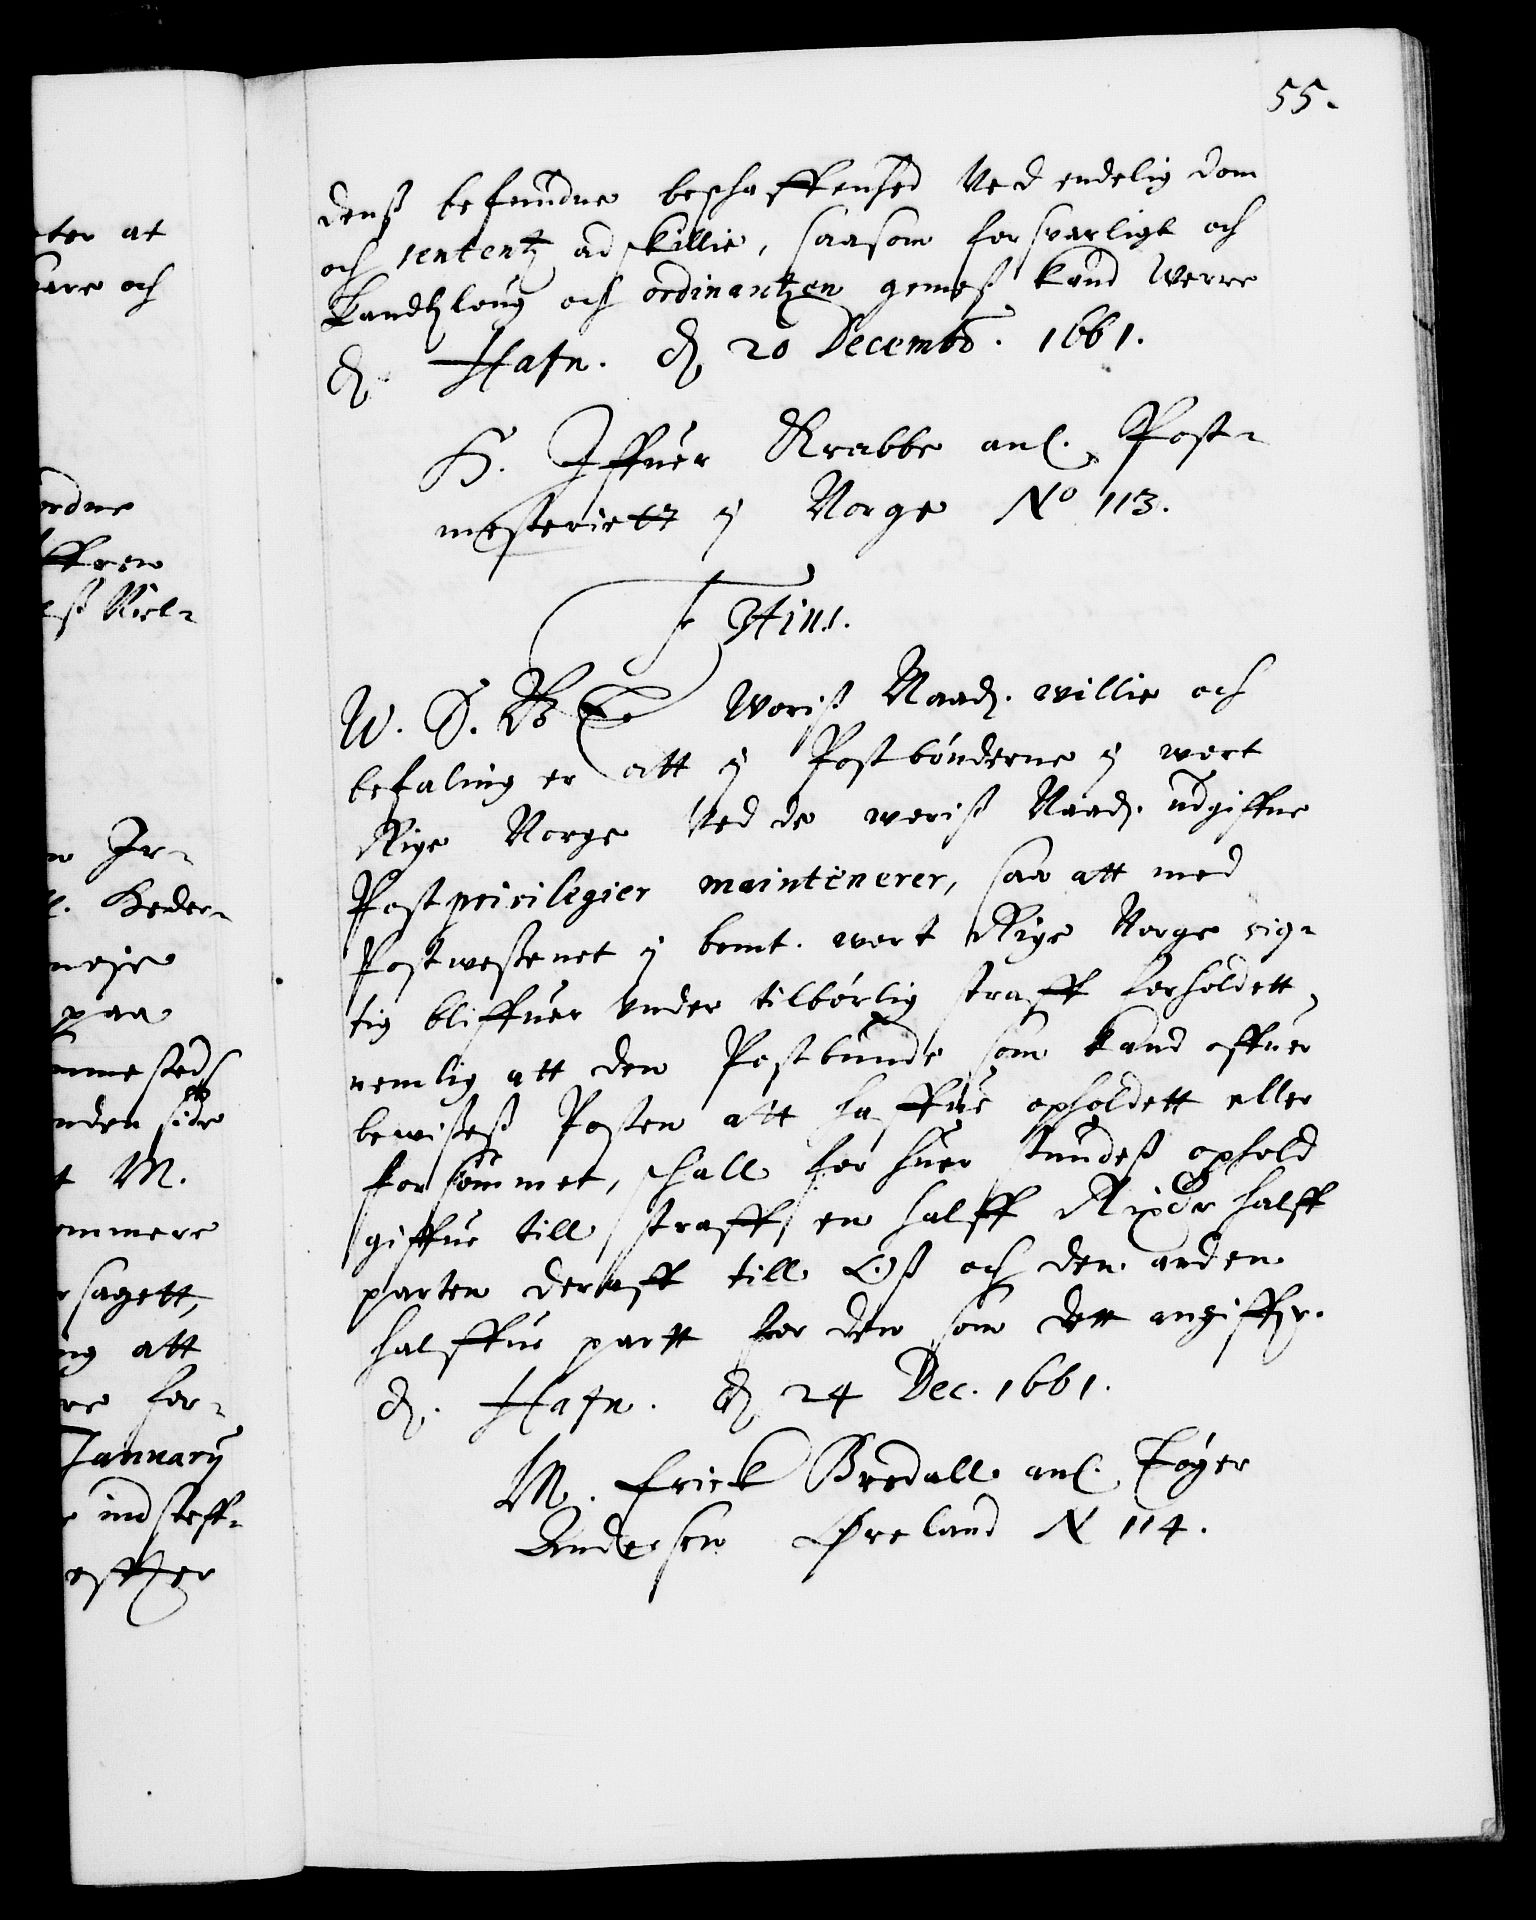 55.
denß befundne beschaffenhed ved endelig dom
och sententz adskillie, saasom forsvarligt och
Landßloug och ordinantzen gemeß kand werre
Hafn. 20 Decembr. 1661.
H. Iffuer Krabbe anl. Post-
mesteriett y Norge No 113.
F Tius.
W. S. G. T. Woriß Naad. willie och
befaling er att y Postbønderne y wort
Rige Norge Ved de woriß Naad. udgiffne
Postprivilegier maintenerer, saa att med
Postweßenet y bemt. wort Rige Norge rig-
tig bliffuer under tilbørlig straff forholdett,
nemlig att den Postbunde som kand offuer
bewißeß Posten att haffue opholdett eller
forsømmet, schall for huer stundeß ophold
giffue till straff, en halff Rixdr halff
parten deraff till Oß och den anden
halffue partt for den som dett angiffr.
Hafn. 24 Dec. 1661.
M. Erick Bredall anl. Tøger
Andersen Øreland N 114.
ter at
are och
ordne
ffren
ß Niel-
Jr-
Heder-
paa
mmesteds
nden side
M.
ommere
sagett,
ng att
re for-
January
indsteff-
effter